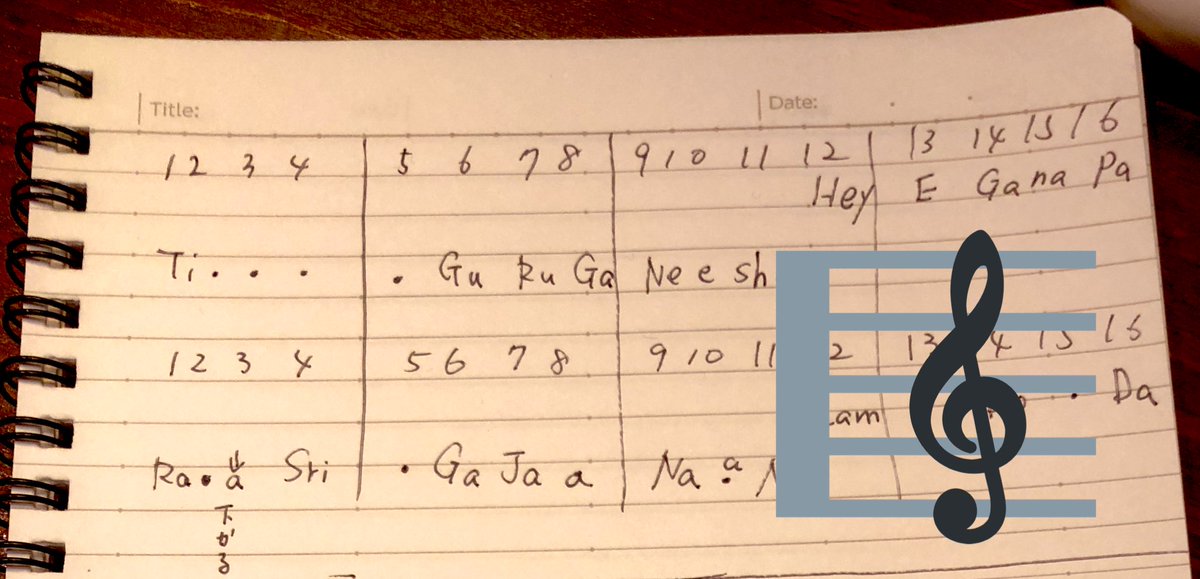 Title: Date:
1 2 3 4 5 6 7 8 9 10 11 12 13 14 15 16
Hey E Gana Pa
Ti・・・ ・Gu Ru Ga Ne e sh
1 2 3 4 5 6 7 8 9 10 11 2 13 4 15 16
am ・ Da
Ra・a Sri ・Ga Ja a Na・a
下がる